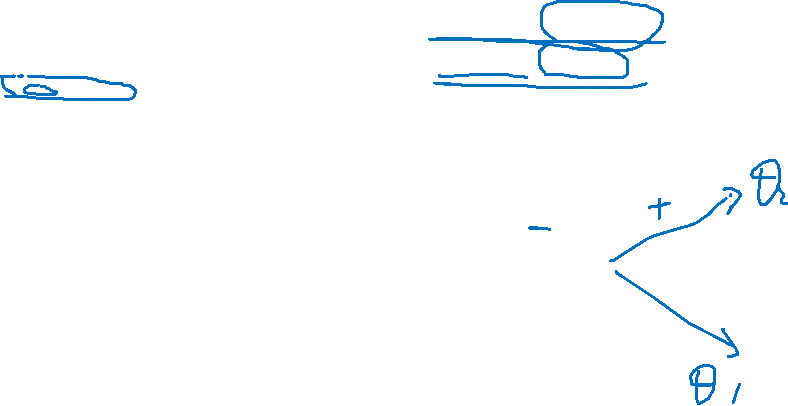 + θ₂
-
θ₁